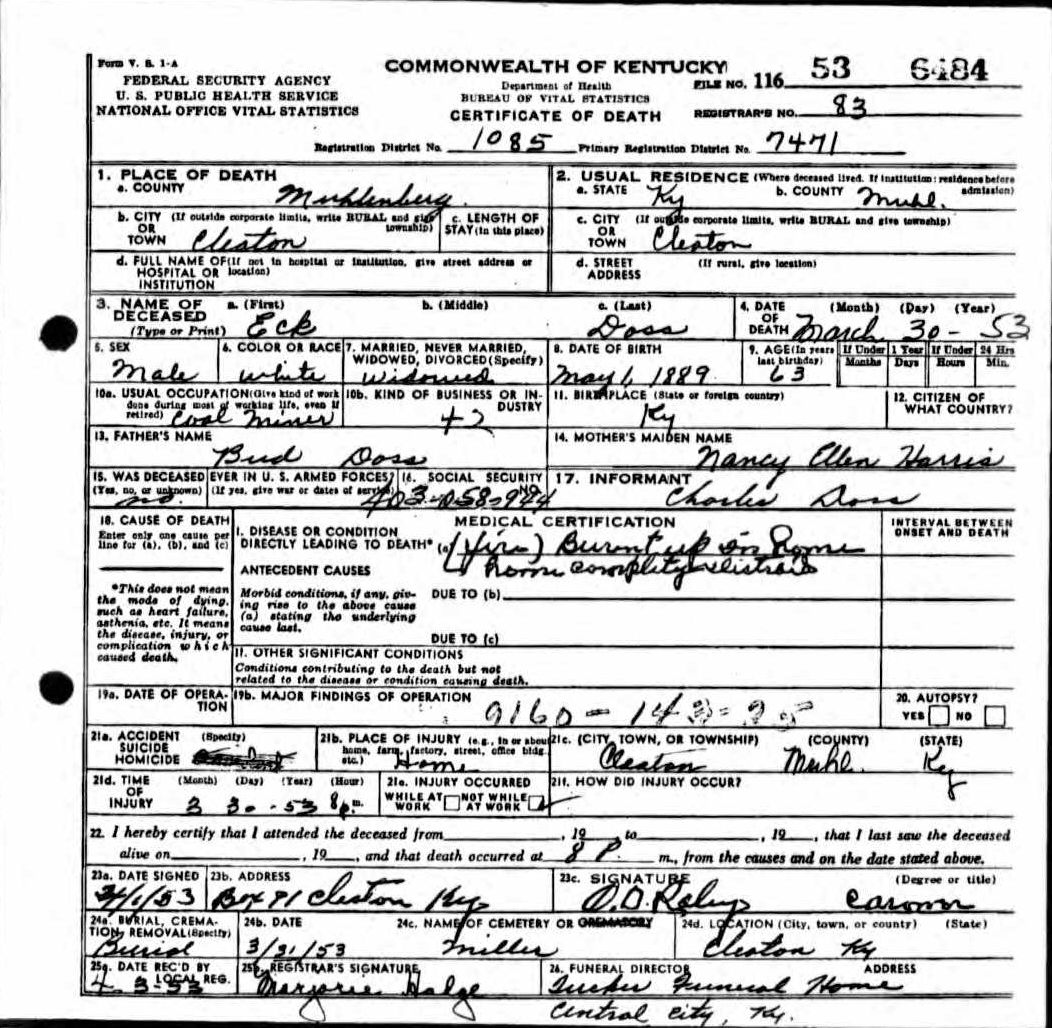 Form V. S. 1-A
FEDERAL SECURITY AGENCY
U. S. PUBLIC HEALTH SERVICE
NATIONAL OFFICE VITAL STATISTICS
COMMONWEALTH OF KENTUCKY
Department of Health
BUREAU OF VITAL STATISTICS
CERTIFICATE OF DEATH
FILE NO. 116 53 6484
REGISTRAR'S NO. 83
Registration District No. 1085 Primary Registration District No. 7471
1. PLACE OF DEATH
a. COUNTY Muhlenberg
2. USUAL RESIDENCE (Where deceased lived. If institution: residence before admission)
a. STATE Ky b. COUNTY Muhl.
b. CITY (If outside corporate limits, write RURAL and give township) OR TOWN Cleaton
c. LENGTH OF STAY (in this place)
c. CITY (If outside corporate limits, write RURAL and give township) OR TOWN Cleaton
d. FULL NAME OF (If not in hospital or institution, give street address or location) HOSPITAL OR INSTITUTION
d. STREET ADDRESS (If rural, give location)
3. NAME OF DECEASED (Type or Print) a. (First) Eck b. (Middle) c. (Last) Doss
4. DATE OF DEATH (Month) (Day) (Year) March 30-53
5. SEX Male
6. COLOR OR RACE white
7. MARRIED, NEVER MARRIED, WIDOWED, DIVORCED (Specify) Widowed
8. DATE OF BIRTH May 1, 1889
9. AGE (In years last birthday) 63 If Under 1 Year Months Days If Under 24 Hrs Hours Min.
10a. USUAL OCCUPATION (Give kind of work done during most of working life, even if retired) Coal Miner
10b. KIND OF BUSINESS OR INDUSTRY 42
11. BIRTHPLACE (State or foreign country) Ky
12. CITIZEN OF WHAT COUNTRY?
13. FATHER'S NAME Bud Doss
14. MOTHER'S MAIDEN NAME Nancy Ellen Harris
15. WAS DECEASED EVER IN U. S. ARMED FORCES? (Yes, no, or unknown) (If yes, give war or dates of service) no
16. SOCIAL SECURITY NO. 403-058-944
17. INFORMANT Charles Doss
18. CAUSE OF DEATH
Enter only one cause per line for (a), (b), and (c)
*This does not mean the mode of dying, such as heart failure, asthenia, etc. It means the disease, injury, or complication which caused death.
MEDICAL CERTIFICATION
INTERVAL BETWEEN ONSET AND DEATH
I. DISEASE OR CONDITION DIRECTLY LEADING TO DEATH* (a) (fire) Burnt up in home
home complety
ANTECEDENT CAUSES
Morbid conditions, if any, giving rise to the above cause (a) stating the underlying cause last.
DUE TO (b)
DUE TO (c)
II. OTHER SIGNIFICANT CONDITIONS
Conditions contributing to the death but not related to the disease or condition causing death.
19a. DATE OF OPERATION
19b. MAJOR FINDINGS OF OPERATION
9160-143-25
20. AUTOPSY? YES NO
21a. ACCIDENT SUICIDE HOMICIDE (Specify)
21b. PLACE OF INJURY (e.g., in or about home, farm, factory, street, office bldg. etc.) Home
21c. (CITY, TOWN, OR TOWNSHIP) (COUNTY) (STATE) Cleaton Muhl. Ky
21d. TIME OF INJURY (Month) (Day) (Year) (Hour) 3 30-53 8p m.
21e. INJURY OCCURRED WHILE AT WORK NOT WHILE AT WORK
21f. HOW DID INJURY OCCUR?
22. I hereby certify that I attended the deceased from , 19 to , 19 , that I last saw the deceased
alive on , 19 , and that death occurred at 8 P. m., from the causes and on the date stated above.
23a. DATE SIGNED 4/1/53
23b. ADDRESS Box 91 Cleaton Ky
23c. SIGNATURE (Degree or title) Coroner
24a. BURIAL, CREMATION, REMOVAL (Specify) Burial
24b. DATE 3/31/53
24c. NAME OF CEMETERY OR CREMATORY Miller
24d. LOCATION (City, town, or county) (State) Cleaton Ky
25a. DATE REC'D BY LOCAL REG. 4-3-53
25b. REGISTRAR'S SIGNATURE Marjorie
26. FUNERAL DIRECTOR ADDRESS Tucker Funeral Home
Central City, Ky.